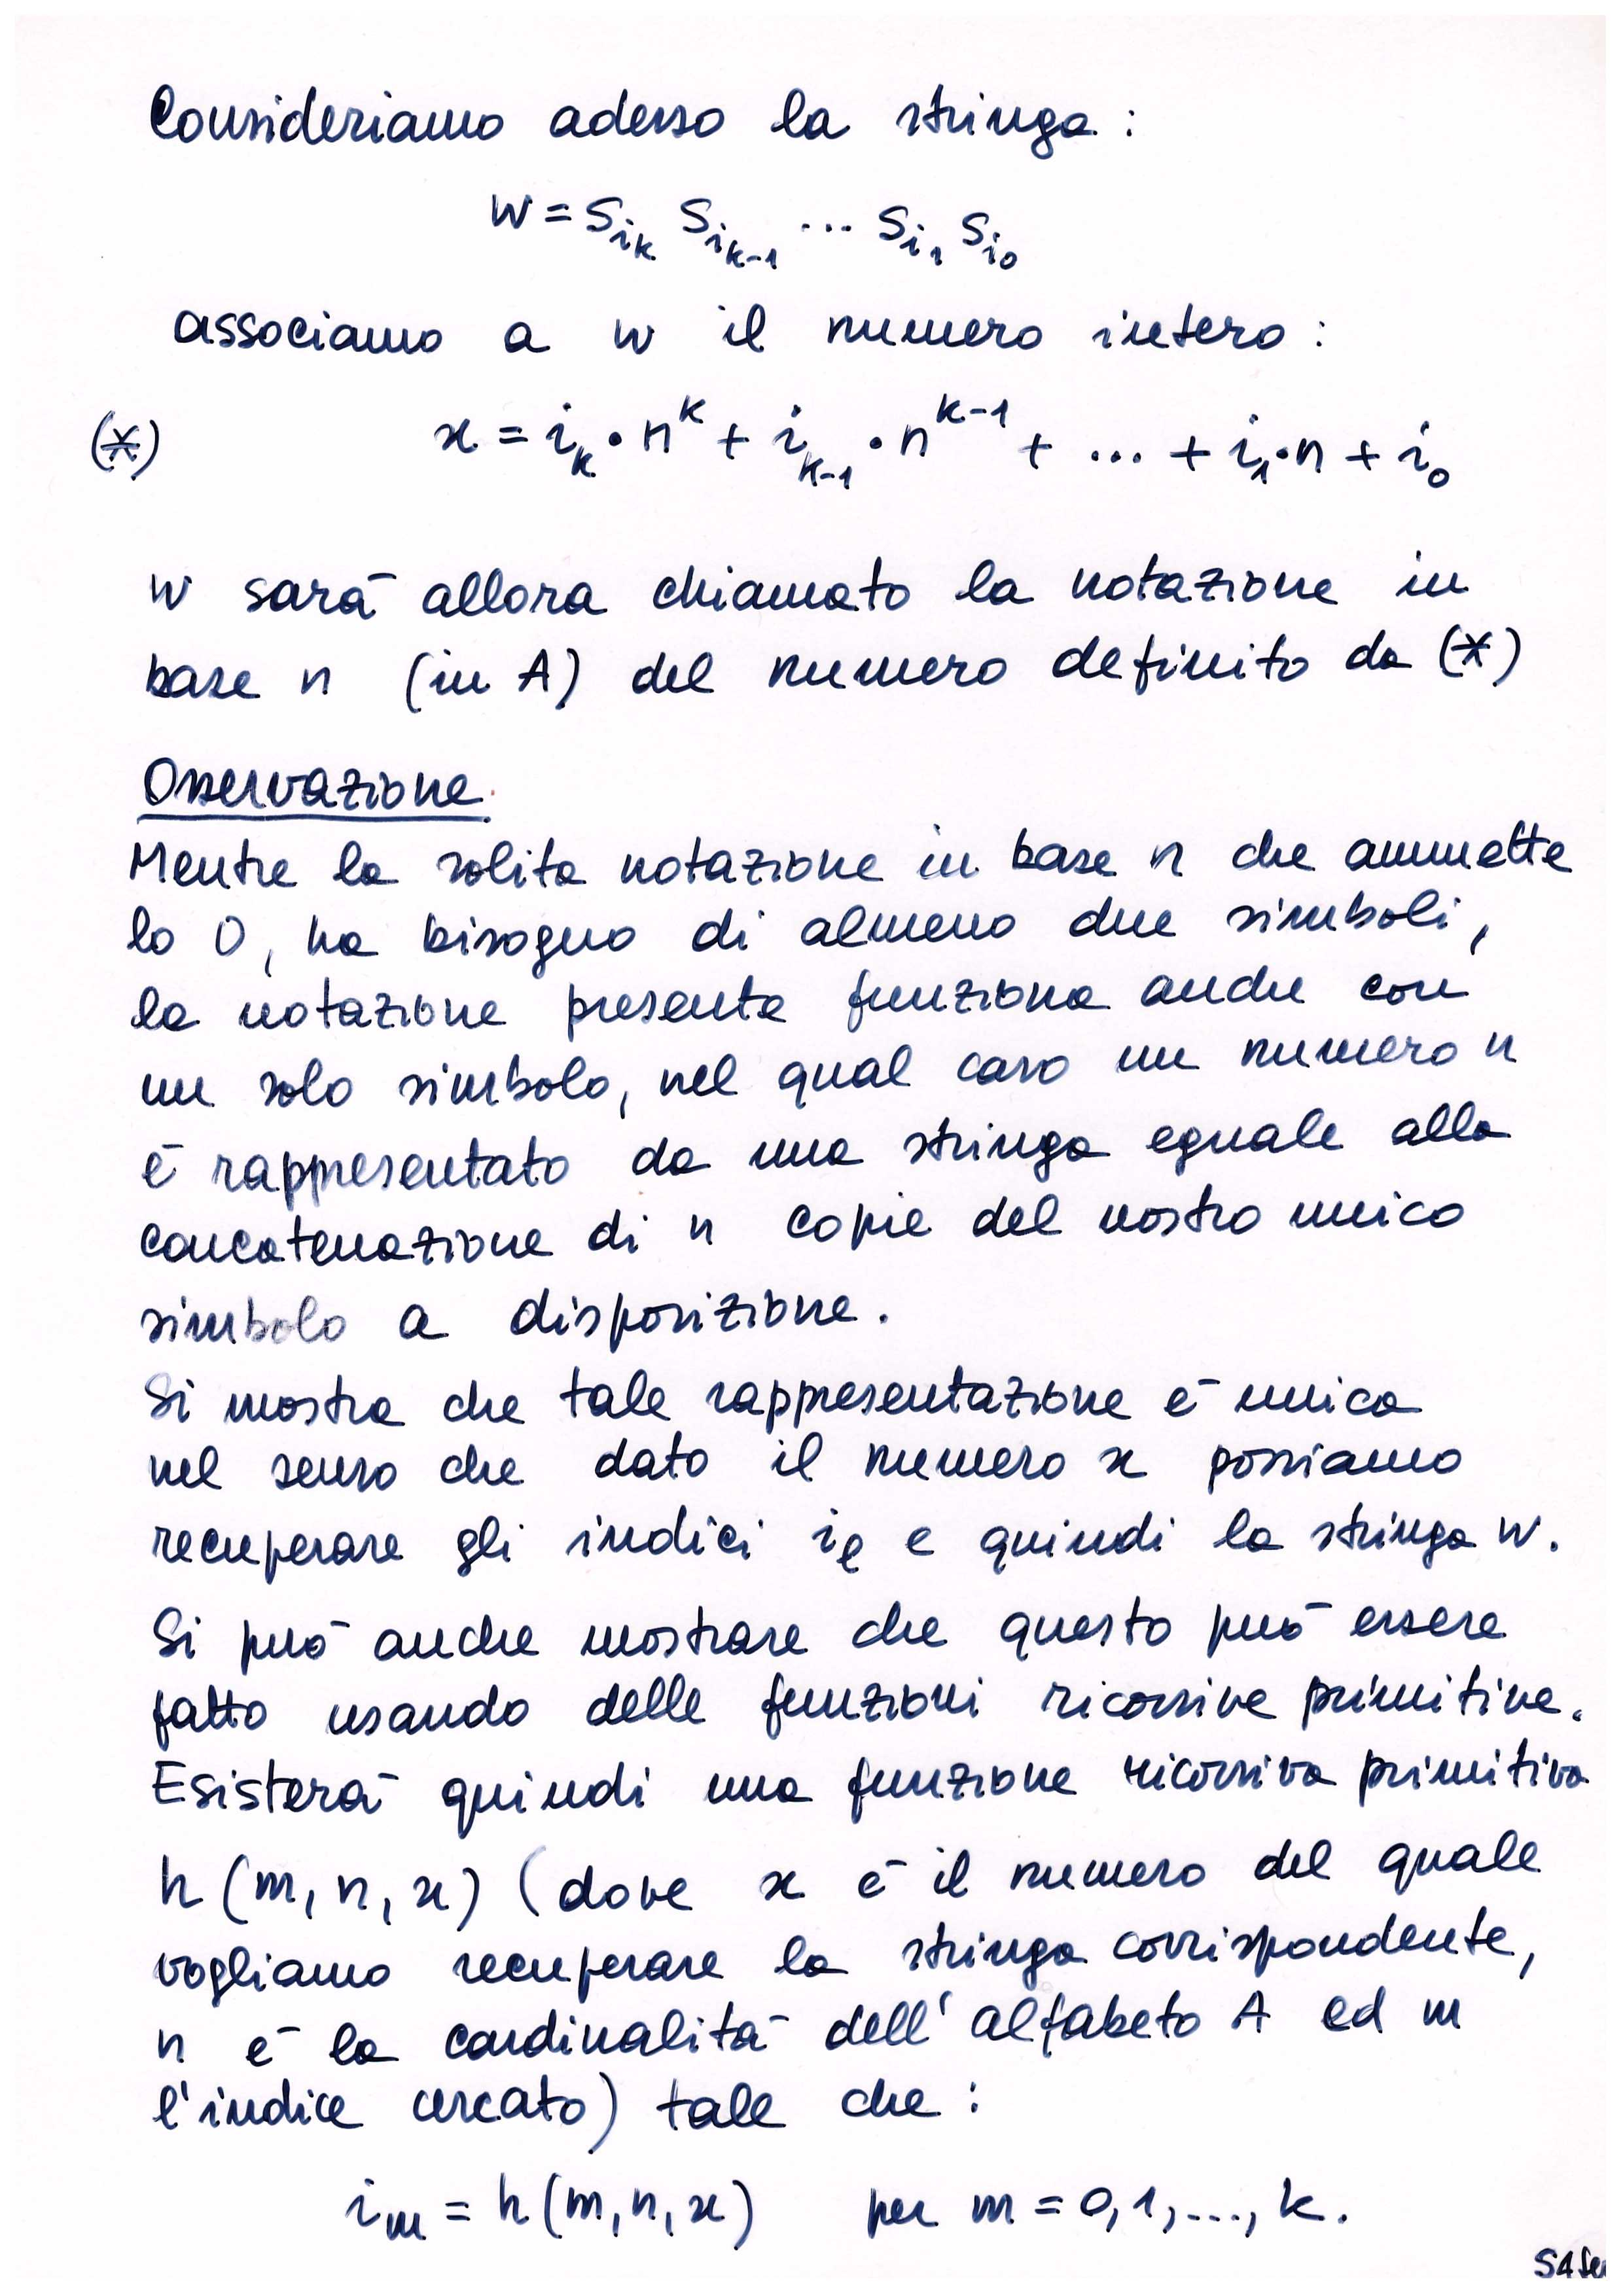 Consideriamo adesso la stringa :
w = S_{i_k} S_{i_{k-1}} ... S_{i_1} S_{i_0}
associamo a w il numero intero :
(*) x = i_k · n^k + i_{k-1} · n^{k-1} + ... + i_1 · n + i_0
w sarà allora chiamato la notazione in
base n (in A) del numero definito da (*)
Osservazione.
Mentre la solita notazione in base n che ammette
lo 0, ha bisogno di almeno due simboli,
la notazione presente funziona anche con
un solo simbolo, nel qual caso un numero n
è rappresentato da una stringa eguale alla
concatenazione di n copie del nostro unico
simbolo a disposizione.
Si mostra che tale rappresentazione è unica
nel senso che dato il numero x possiamo
recuperare gli indici i_l e quindi la stringa w.
Si può anche mostrare che questo può essere
fatto usando delle funzioni ricorsive primitive.
Esisterà quindi una funzione ricorsiva primitiva
h (m, n, x) (dove x è il numero del quale
vogliamo recuperare la stringa corrispondente,
n è la cardinalità dell'alfabeto A ed m
l'indice cercato) tale che :
i_m = h (m, n, x) per m = 0, 1, ..., k.